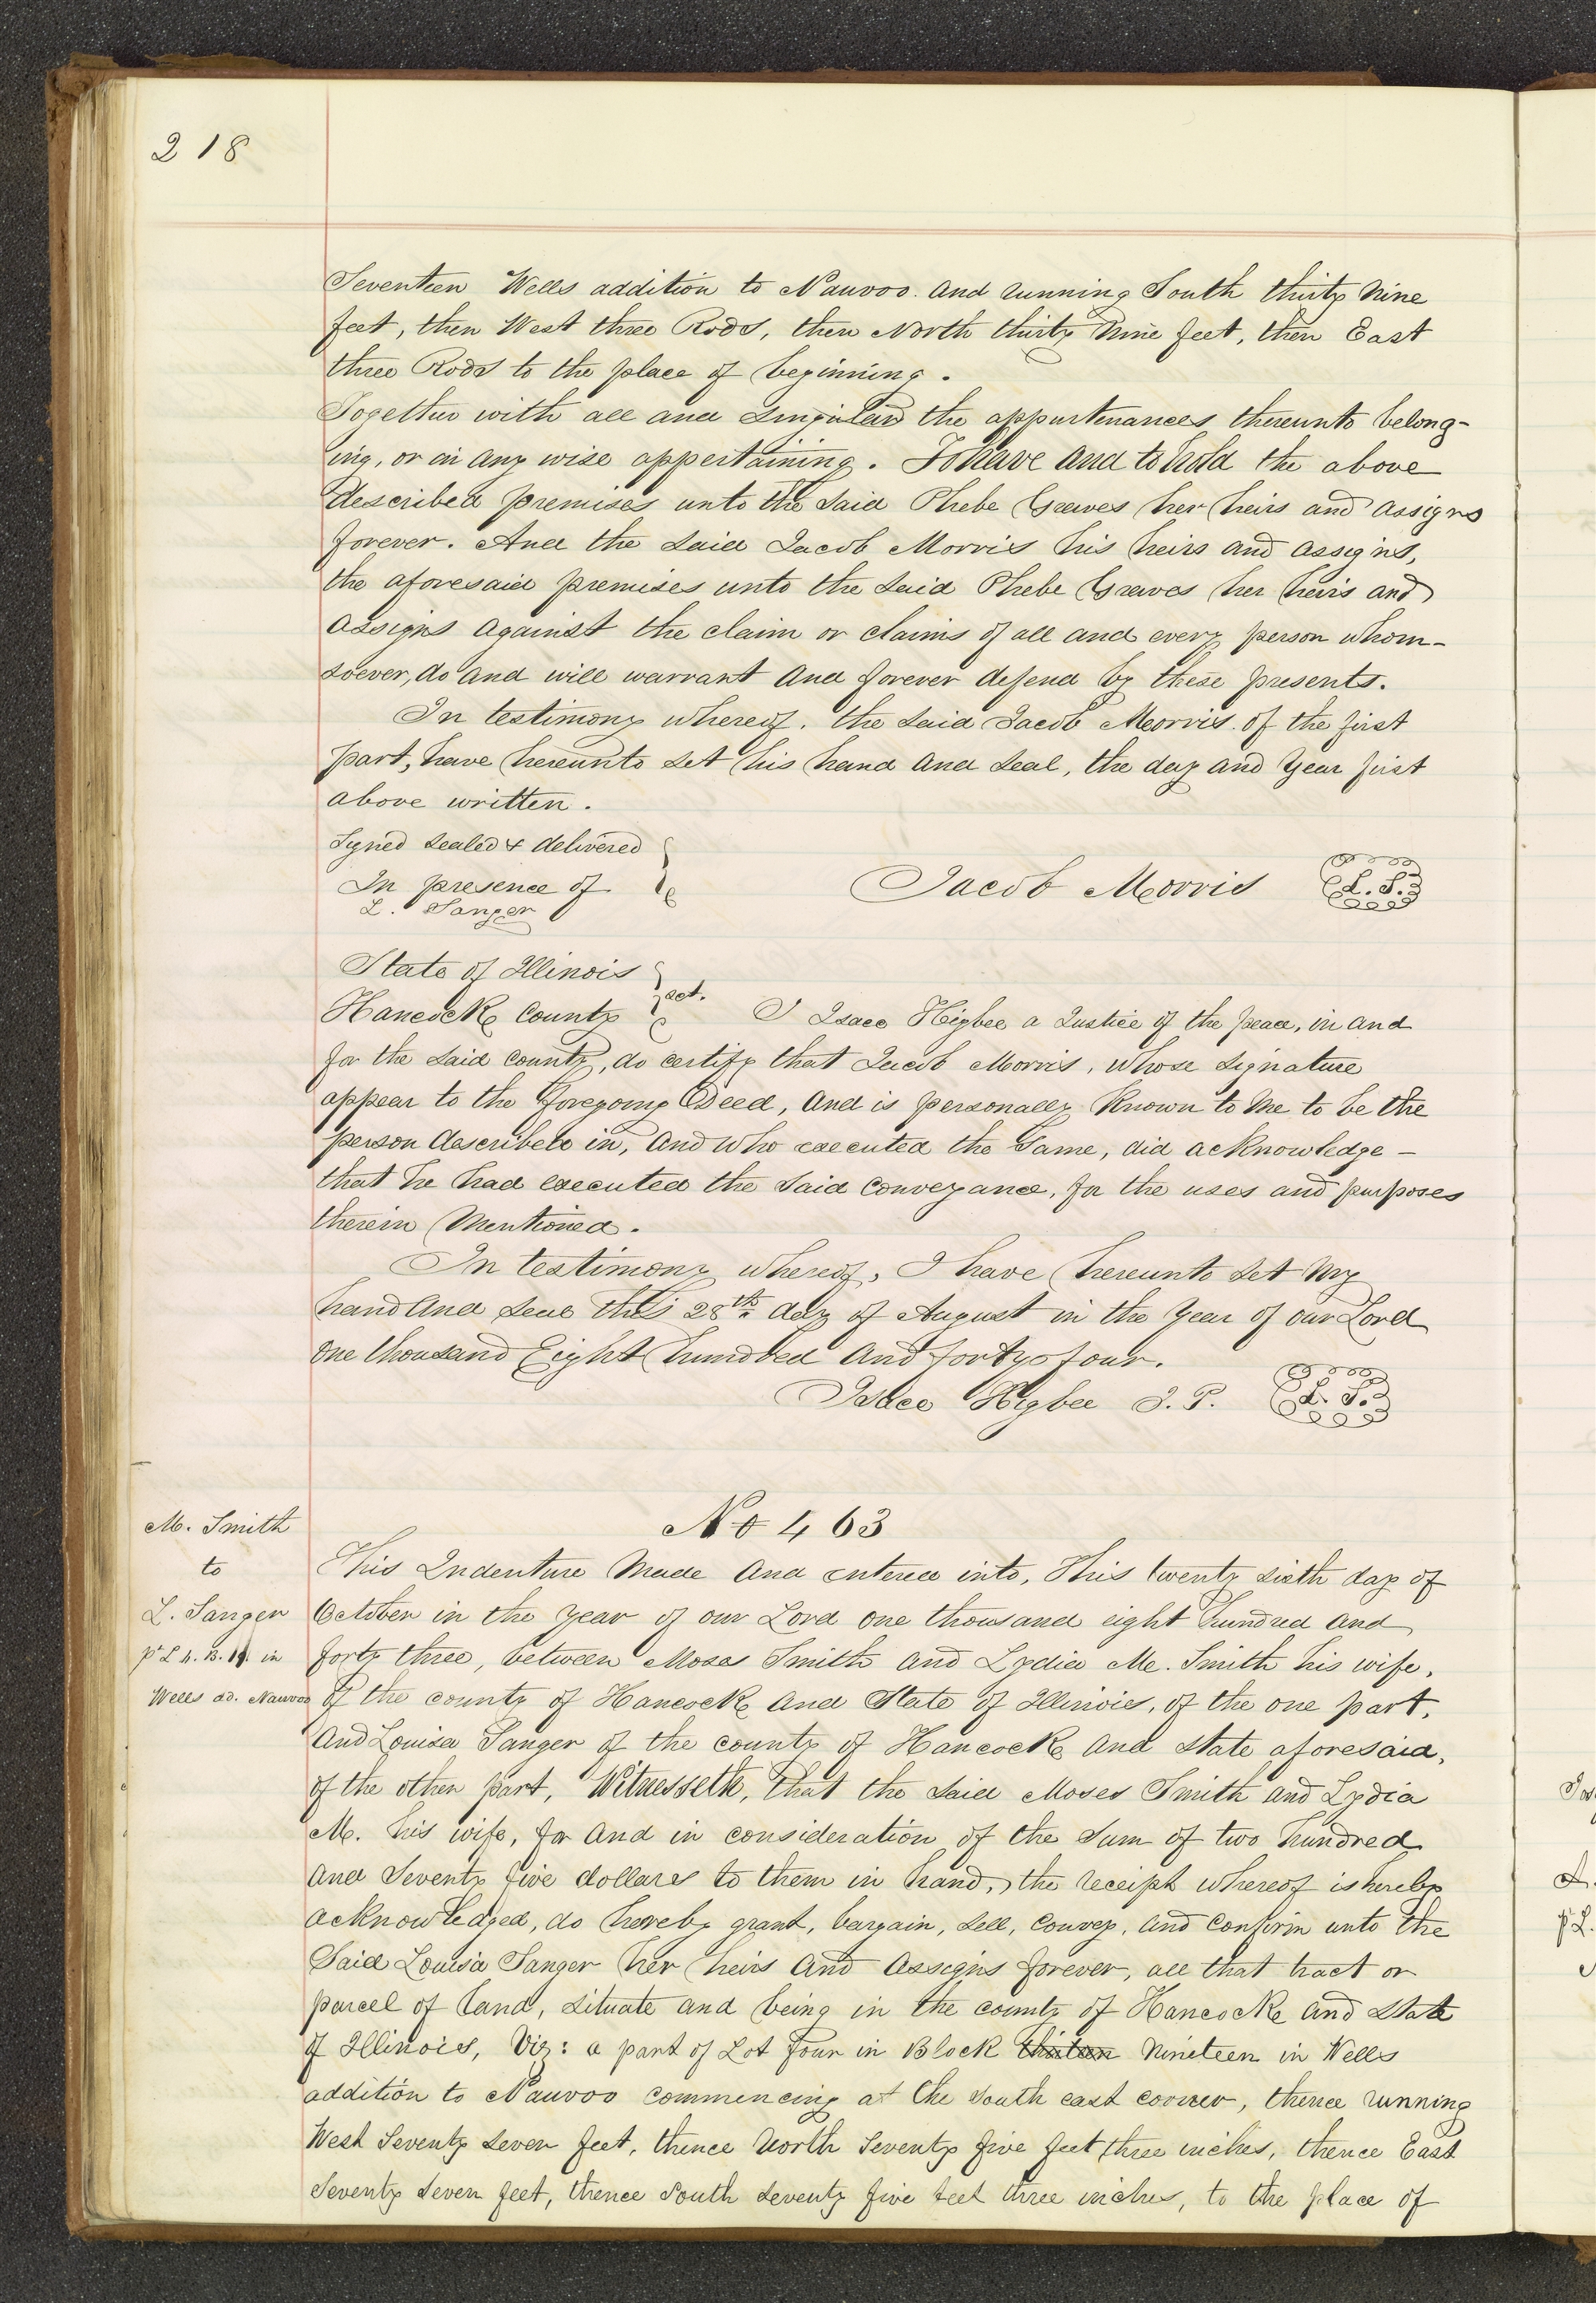 218
Seventeen Wells addition to Nauvoo. and running South thirty nine
feet, then West three Rods, then North thirty nine feet, then East
three Rods to the place of beginning.
Together with all and singular the appurtenances thereunto belong-
ing, or in any wise appertaining. To have and to hold the above
described premises unto the said Phebe Greeves her heirs and assigns
forever. And the said Jacob Morris his heirs and assigns,
the aforesaid premises unto the said Phebe Greaves her heirs and
assigns against the claim or claims of all and every person whom-
soever, do and will warrant and forever defend by these presents.
In testimony whereof, the said Jacob Morris. of the first
part, have hereunto set his hand and seal, the day and year first
above written.
Signed sealed & delivered
In presence of
L. Sanger
Jacob Morris L. S.
State of Illinois
Hancock County } sct. I Isaac Higbee a Justice of the peace, in and
for the said county, do certify that Jacob Morris, whose signature
appear to the foregoing Deed, and is personally known to me to be the
person described in, and who executed the same, did acknowledge -
that he had executed the said conveyance, for the uses and purposes
therein mentioned.
In testimony whereof, I have hereunto set my
hand and seal this 28th day of August in the year of our Lord
one thousand Eight hundred and forty four.
Isaac Higbee J. P. L. S.
No 463
M. Smith
to
L. Sanger
pt L 4. B. 19. in
Wells ad. Nauvoo
This Indenture made and entered into, this twenty sixth day of
October in the year of our Lord one thousand eight hundred and
forty three, between Moses Smith and Lydia M. Smith his wife,
of the county of Hancock and State of Illinois, of the one part,
and Louisa Sanger of the county of Hancock and state aforesaid,
of the other part, Witnesseth, that the said Moses Smith and Lydia
M. his wife, for and in consideration of the sum of two hundred
and seventy five dollars to them in hand, the receipt whereof is hereby
acknowledged, do hereby grant, bargain, sell, convey, and confirm unto the
said Louisa Sanger her heirs and assigns forever, all that tract or
parcel of land, situate and being in the county of Hancock and state
of Illinois, Viz: a part of Lot four in Block thirteen nineteen in Wells
addition to Nauvoo commencing at the south east corner, thence running
West seventy seven feet, thence north seventy five feet three inches, thence East
seventy seven feet, thence south seventy five feet three inches, to the place of